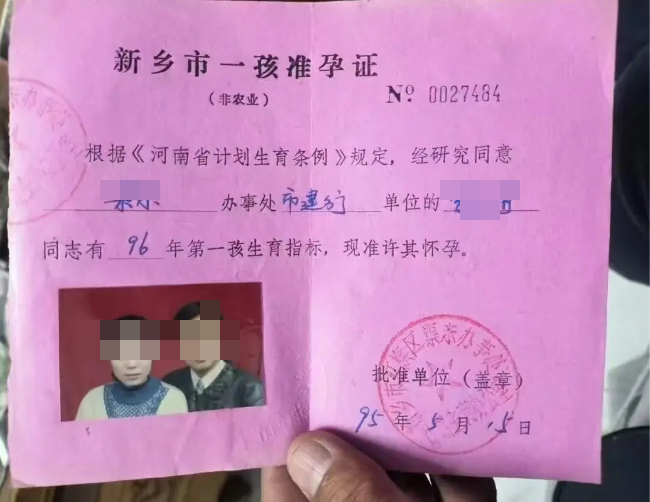 新乡市一孩准孕证
（非农业）
Nº 0027484
根据《河南省计划生育条例》规定，经研究同意
办事处市建行单位的
同志有96年第一孩生育指标，现准许其怀孕。
批准单位（盖章）
95年5月15日